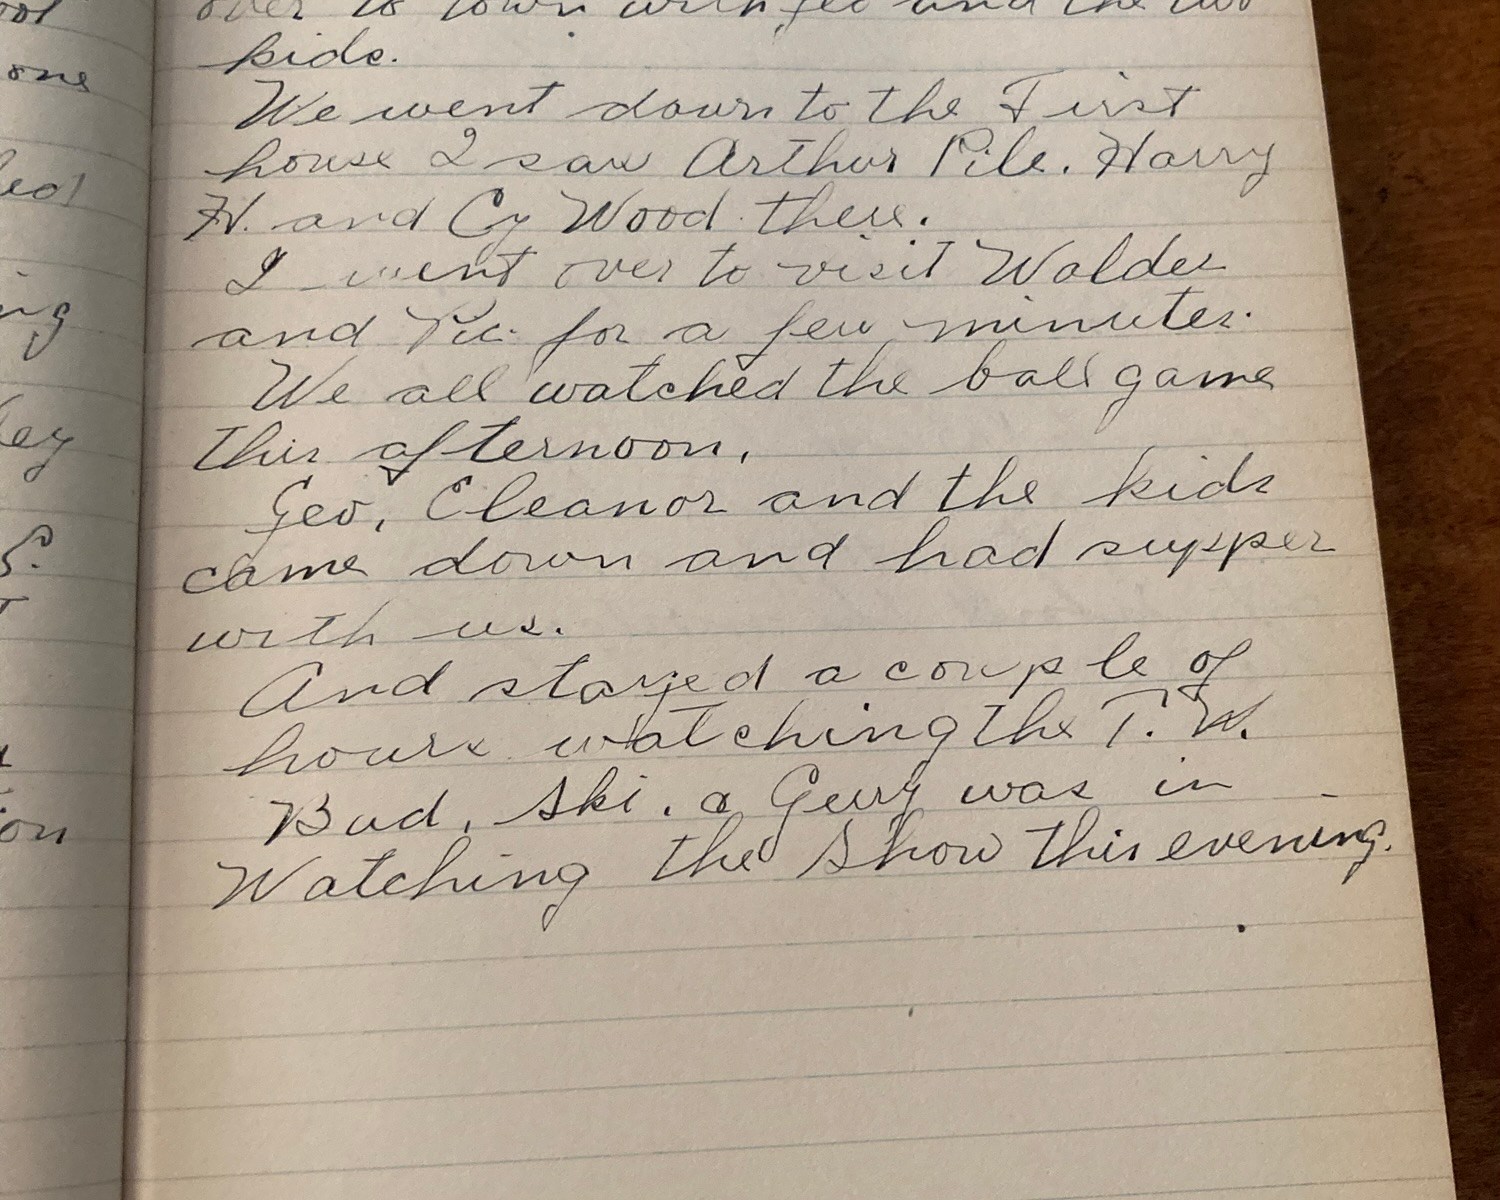 over to town with Geo and the two
kids.
We went down to the First
house I saw Arthur Pile. Harry
H. and Cy Wood there.
I went over to visit
and for a few minutes.
We all watched the ball game
this afternoon.
Geo, Eleanor and the kids
came down and had supper
with us.
And stayed a couple of
hours watching the T.V.
Bud, Ski. & Gerry was in
Watching the Show this evening.
one
ing
ey
S.
on